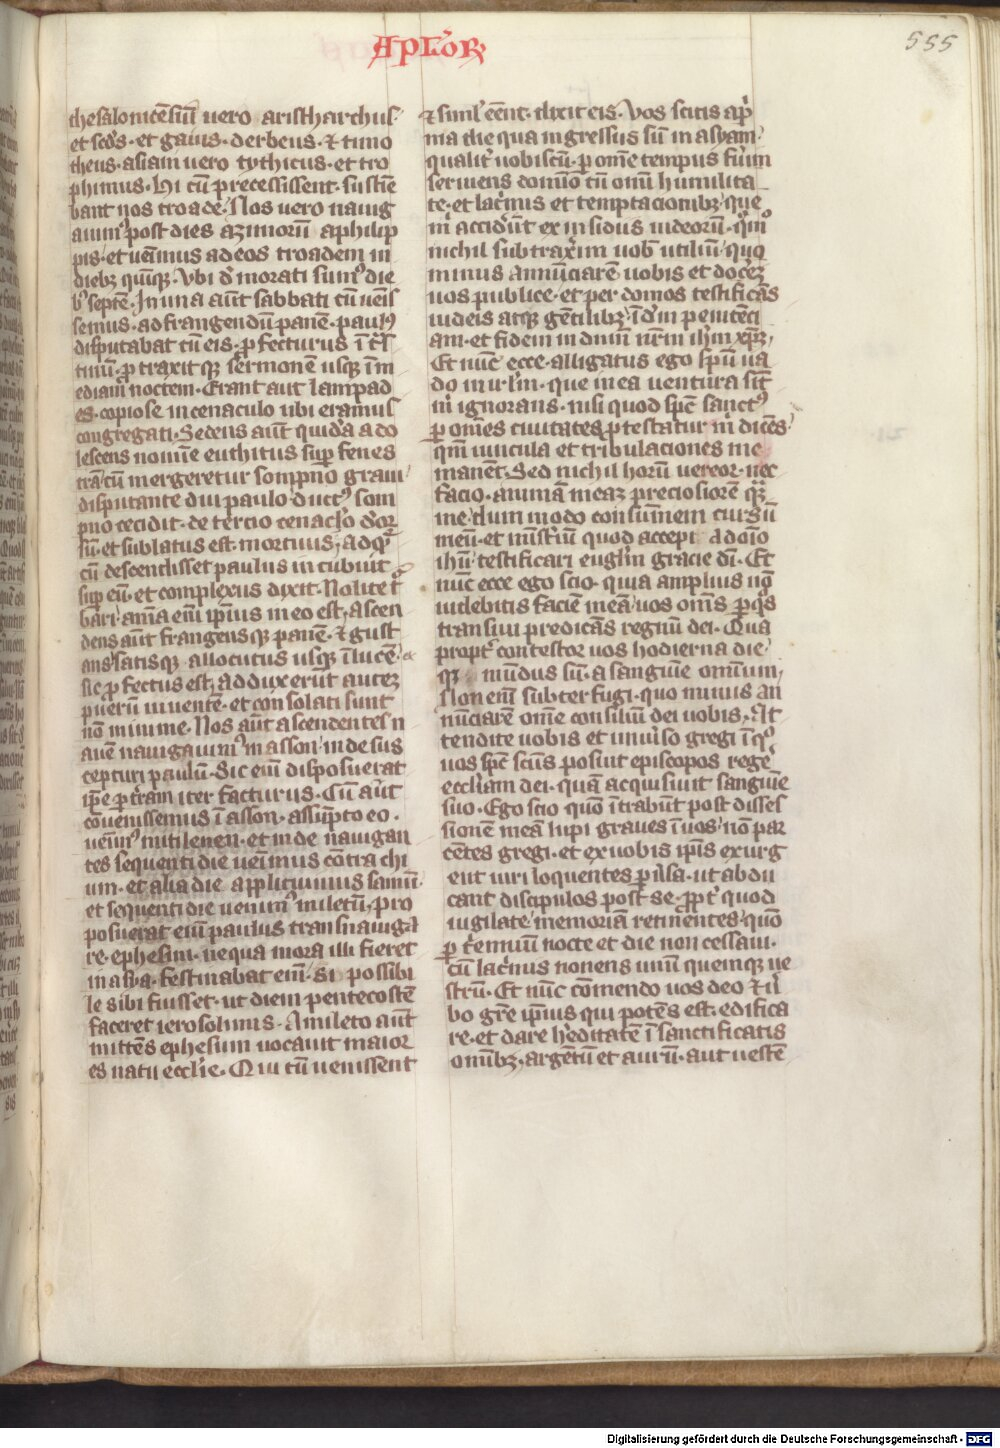 Apl'or
555
thesalonicēsiū vero aristharchus
et scd's · et gaius · derbeus · & timo
theus · asiani uero tythicus · et tro
phimus · hi cū precessissent · sustē
bant nos troade · Nos uero nauig
auim' post dies azimorū a philip
pis · et uēimus ad eos troadem in
dieb; quīq; · Vbi d' morati sum' die
b' septē · In una aūt sabbati cū ueīs
semus · ad frangendū panē · paul'
disputabat cū eis · pfecturus ī c̄s
tinū · protraxit q; sermonē usq; ī m
ediam noctem · Erant aut lampad
es · copiose in cenaculo ubi eramus
congregati · Sedens aūt quidā ado
lescens noīe euthitus sup fenes
trā cū mergeretur sompno graui
disputante diu paulo · duct' som
pno cecidit · de tercio cenaclo deor
sū · et sublatus est · mortuus · ad q
cū descendisset paulus incubuit
sup eū · et complexus dixit · Nolite t
bari · anīa enī ipīus in eo est · ascen
dens aūt frangens q; panē · & gust
ans satisq; allocutus usq; ī lucē ·
sic pfectus est · adduxerūt autez
puerū uiuentē · et consolati sunt
nō minime · Nos aūt ascendentes n
auē nauigauim' in asson · inde sus
cepturi paulū · Sic enī disposuerat
ipe p trām iter facturus · Cū aūt
cōuenissemus ī asson · assūpto eo ·
uēim' mitilenen · et inde nauigan
tes sequenti die uēimus cōtra chi
um · et alia die applicuimus samū
et sequenti die uenim' miletū · pro
posuerat enī paulus transnauiga
re · ephesim · ne qua mora illi fieret
in asya · festinabat enī · si possibi
le sibi fuisset · ut diem pentecostē
faceret ierosolimis · A mileto aūt
mittēs ephesum uocauit maior
es natu ecclīe · Qui cū uenissent
& simul eent · dixit eis · Vos scitis a pr
ma die qua ingressus sū in asyam
qualit' uobiscū · p omē tempus fuīm
seruiens domīo cū omī humilita
te · et lac'mis et temptacionib; · que
m' acciderūt ex insidiis iudeorū · qm'
nichil subtraxerim uob' utiliū · quo
minus annūciarē uobis et docez
uos publice · et per domos testificās
iudeis atq; gētilib; · ī dm penitēci
am · et fidem in dnm nrm ihm xpm ·
Et nūc ecce · alligatus ego spū ua
do in ierlm · que in ea uentura sīt
m' ignorans · nisi quod spc sanct'
p omes ciuitates ptestatur m' dicēs
qm uincula et tribulaciones me
manēt · Sed nichil horū uereor · nec
facio · animā meaz preciosiorē q;
me · dum modo consūmem cursū
meū · et mīst'iū quod accepi a doīo
ihū · testificari euglm gracie dī · Et
nūc ecce ego scio · quia amplius nō
uidebitis faciē meā · uos oms p q's
transiui predicās regnū dei · Qua
propt' contestor uos hodierna die
q; mūdus sū · a sanguīe omnium
Non enī subterfugi · quo minus an
nūciarē omē consiliū dei uobis · At
tendite uobis et uniu'so gregi ī q°
uos spc scūs posuit episcopos rege
ecclīam dei · quā acquisiuit sanguīe
suo · Ego scio quō ītrabūt post disses
sionē meā lupi graues ī uos nō par
cētes gregi · et ex uobis ipīs exurg
ent uiri loquentes puersa · ut abdu
cant discipulos post se · ppt' quod
uigilate memoriam retinentes quō
p t'enniū nocte et die non cessaui ·
cū lac'mis monens unū quemq; ue
strū · Et nūc cōmendo uos deo & u'
bo gre ipīus qui potēs est · edifica
re · et dare hēditatē ī sanctificatis
omīb; · argētū et aurū · aut uestē
Digitalisierung gefördert durch die Deutsche Forschungsgemeinschaft - DFG